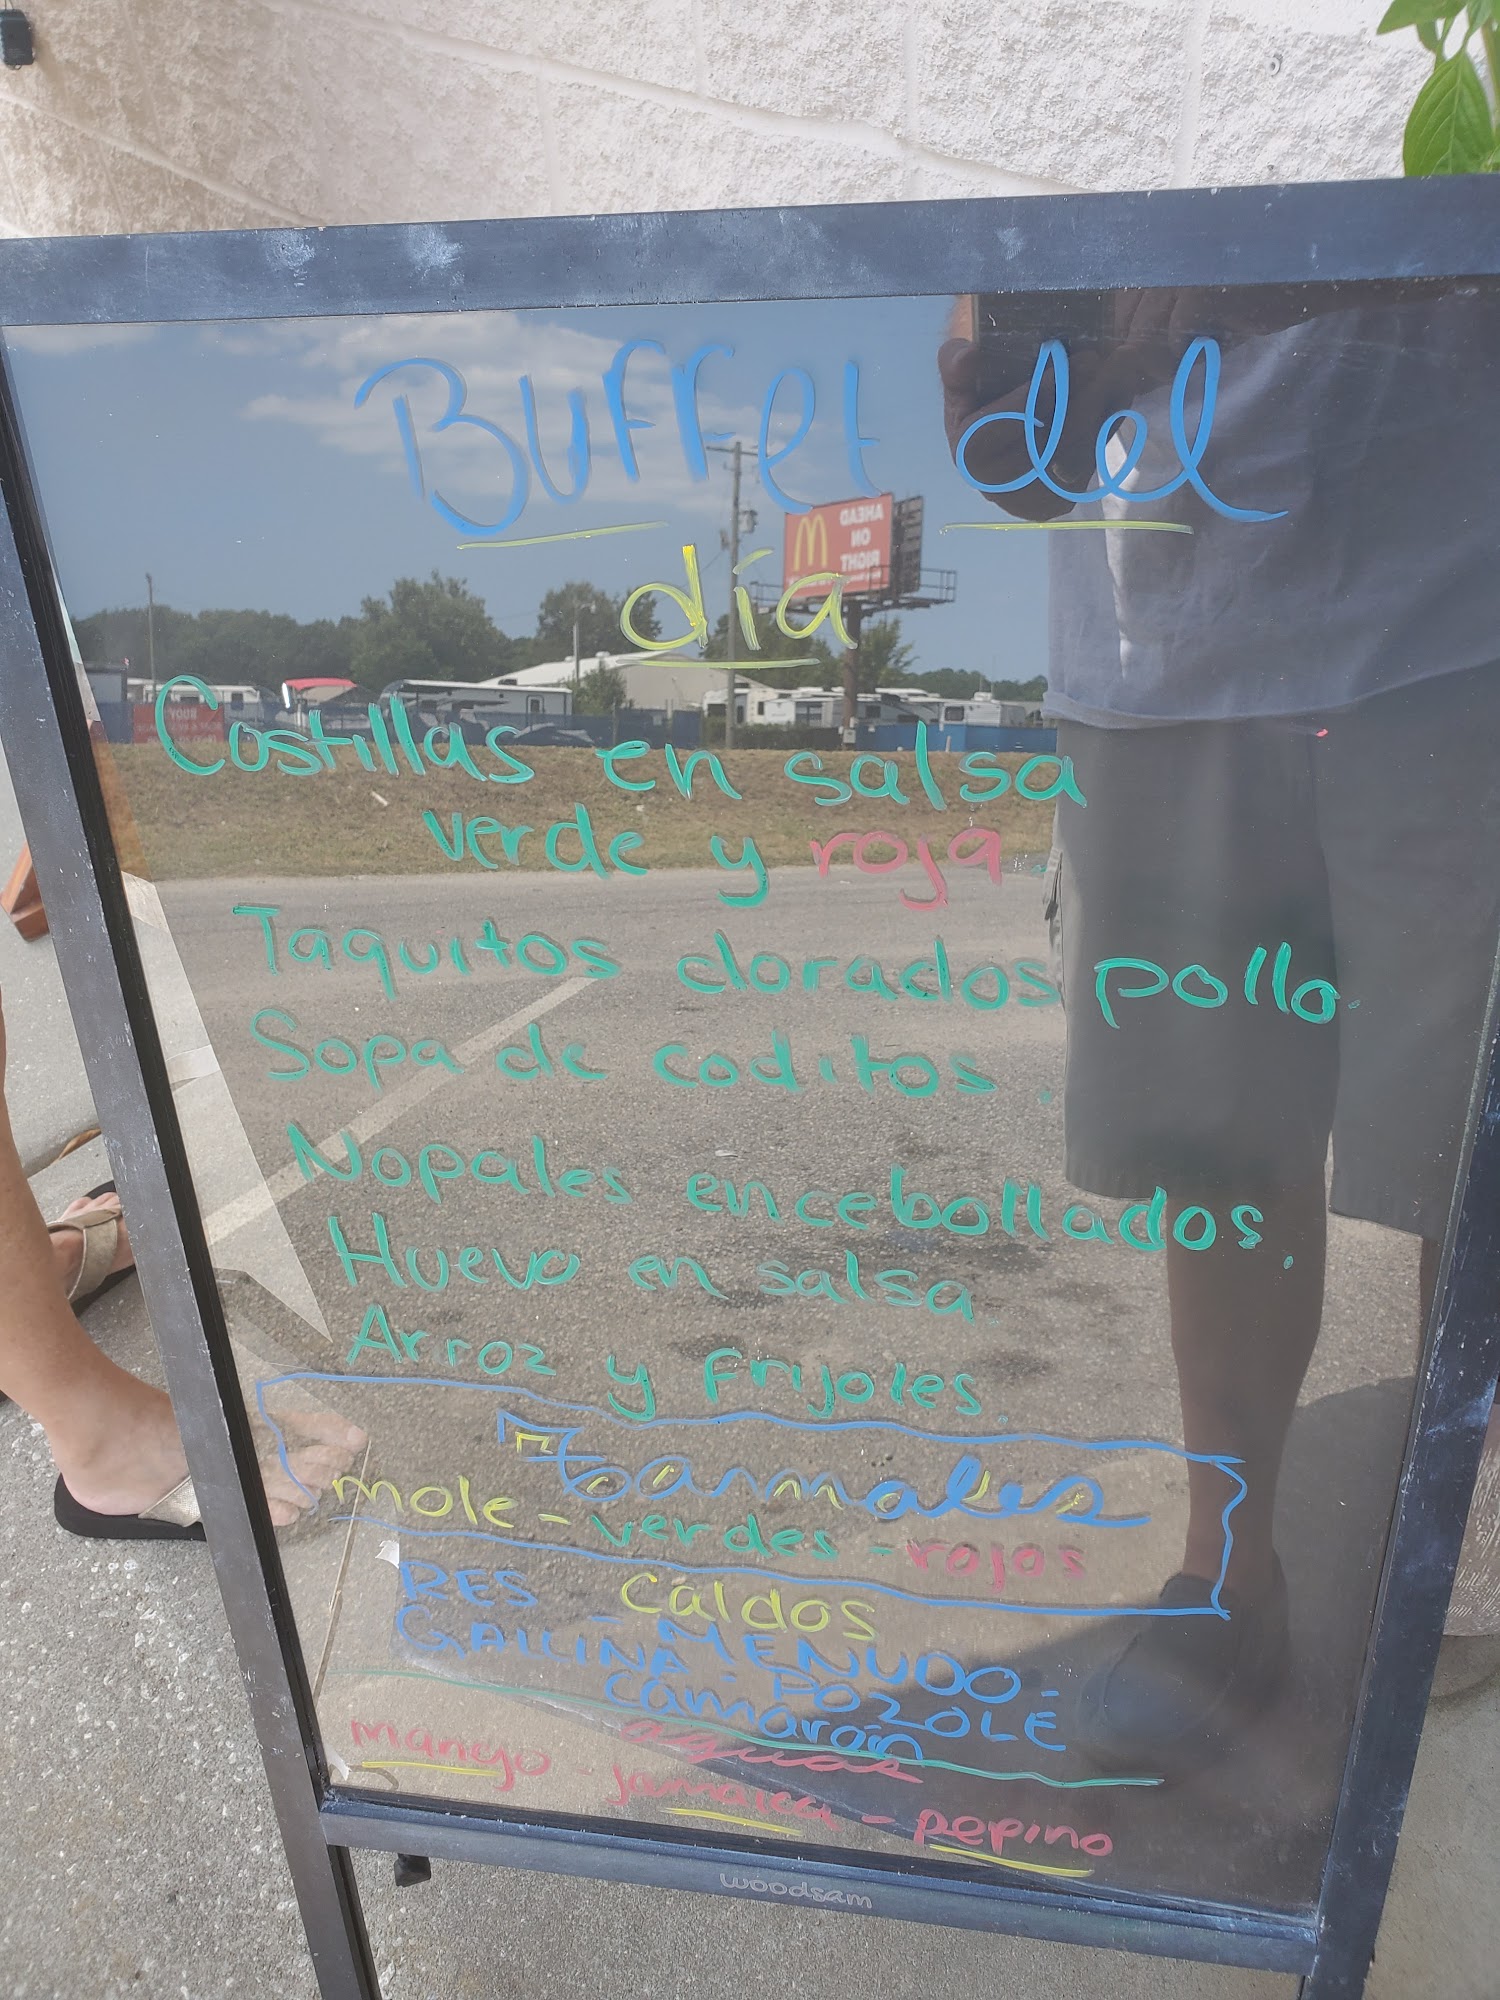 Buffet del
día
Costillas en salsa
verde y roja
Taquitos dorados pollo.
Sopa de coditos.
Nopales encebollados.
Huevo en salsa.
Arroz y Frijoles.
mole - verdes - rojos
caldos
RES - MENUDO -
GALLINA - POZOLE
camarón
aguas
mango - jamaica - pepino
woodsam
AHEAD
ON
RIGHT